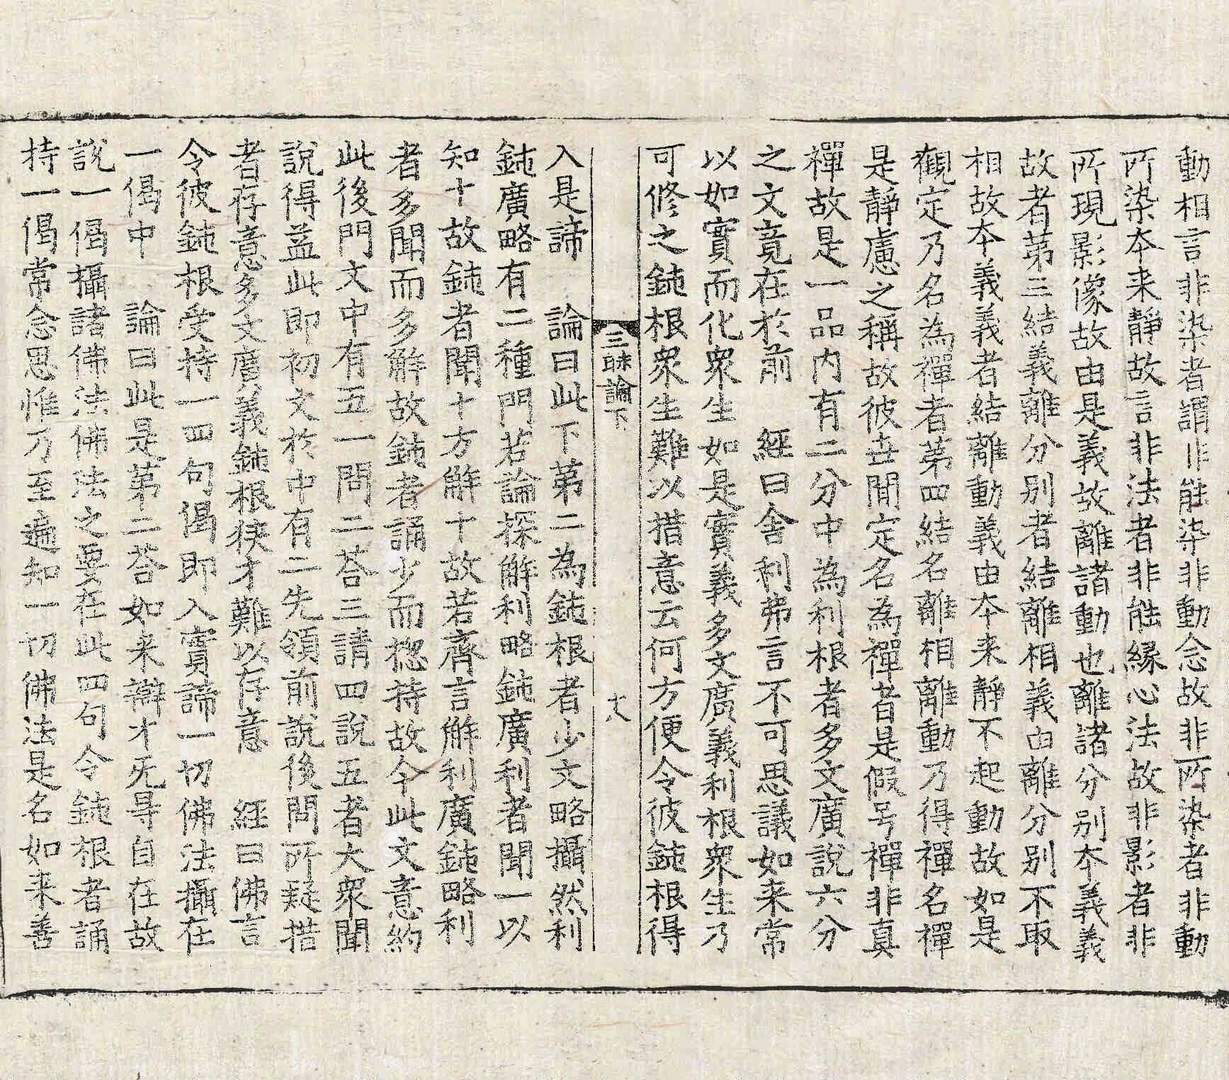 動相言非染者謂非能染非動念故非所染者非動
所染本来靜故言非法者非能緣心法故非影者非
所現影像故由是義故離諸動也離諸分別本義義
故者第三結義離分別者結離相義由離分別不取
相故本義義者結離動義由本来靜不起動故如是
觀定乃名為禪者第四結名離相離動乃得禪名禪
是靜慮之稱故彼世閒定名為禪者是假号禪非真
禪故是一品內有二分中為利根者多文廣說六分
之文竟在於前　經曰舍利弗言不可思議如来常
以如實而化衆生如是實義多文廣義利根衆生乃
可修之鈍根衆生難以措意云何方便令彼鈍根得
三昧論下
十八
入是諦　論曰此下第二為鈍根者少文略攝然利
鈍廣略有二種門若論探解利略鈍廣利者聞一以
知十故鈍者聞十方解十故若齊言解利廣鈍略利
者多聞而多解故鈍者誦少而揔持故今此文意約
此後門文中有五一問二荅三請四說五者大衆聞
說得益此即初文於中有二先領前說後問所疑措
者存意多文廣義鈍根狹才難以存意　經曰佛言
令彼鈍根受持一四句偈即入實諦一切佛法攝在
一偈中　論曰此是第二荅如来辯才无㝵自在故
說一偈攝諸佛法佛法之要在此四句令鈍根者誦
持一偈常念思惟乃至遍知一切佛法是名如来善